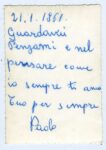 21.1.1961.
Guardami
Pensami e nel
pensare come
io sempre ti amo
tuo per sempre
Paolo